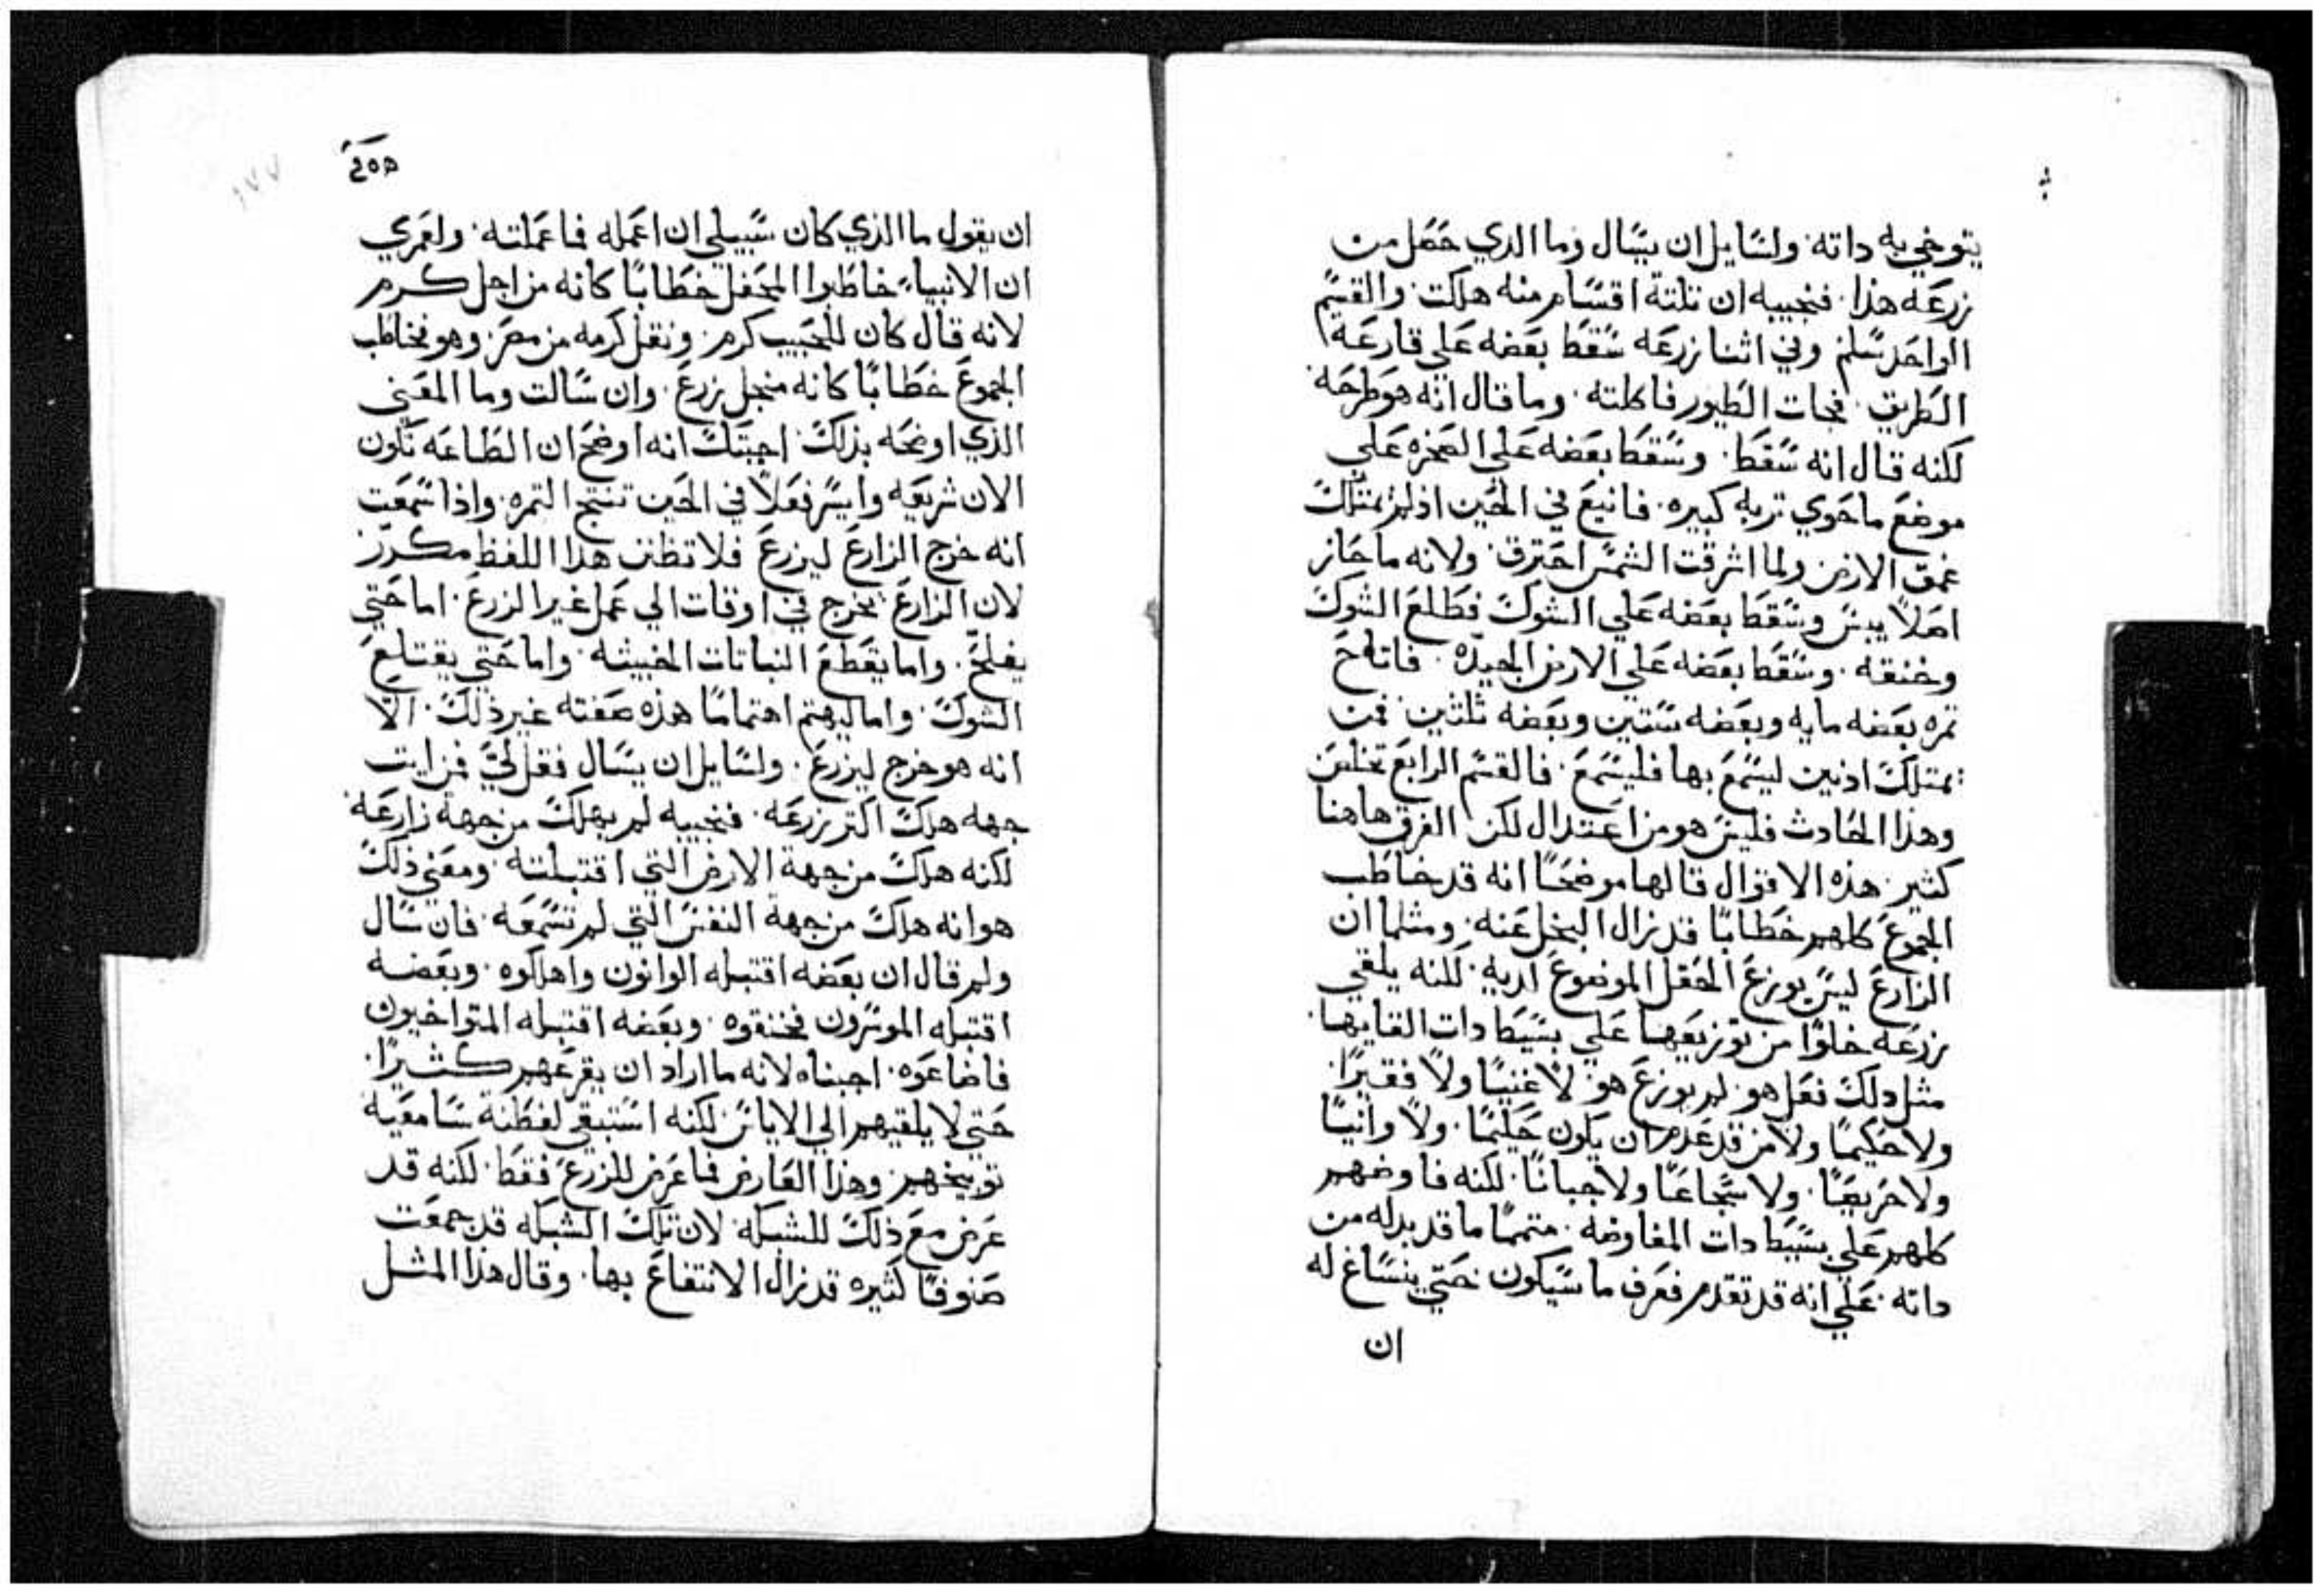 يتوخي به داته. ولسايل ان يسال وما الدي حصل من
زرعه هذا. فنجيبه ان تلتة اقسام منه هلكت. والقسم
الواحد سلم وفي اثنا زرعه سقط بعضه علي قارعة
الطريق. فجات الطيور فاكلته. وما قال انه هو طرحه.
لكنه قال انه سقط. وسقط بعضه علي الصخره علي
موضع ما حوي تربه كبيره. فانبع في الحين اذ لم يمتلك
عمق الارض ولما اشرقت الشمس احترق. ولانه ما حاز
اصلاً يبس وسقط بعضه علي الشوك فطلع الشوك
وخنقه. وسقط بعضه علي الارض الجيده. فاتاح
تمره بعضه مايه وبعضه ستين وبعضه تلتين. فمن
يمتلك اذنين ليسمع بها فليسمع. فالقسم الرابع تخلص
وهذا الحادث فليس هو من اعتدال لكن الفرق هاهنا
كثير. هذه الاقوال قالها موضحاً انه قد خاطب
الجموع كلهم خطاباً قد زال البخل عنه. ومثلما ان
الزارع ليس يوزع الحقل الموضوع لديه. لكنه يلقي
زرعه خلوًا من توزيعها علي بسيط دات القايها.
مثل دلك فعل هو. لم يوزع هو لا غنيًا ولا فقيرًا.
ولا حكيمًا ولا من قد عدم ان يكون حكيمًا. ولا وانيًا
ولا حريصًا. ولا شجاعًا ولا جبانًا. لكنه فاوضهم
كلهم علي بسيط دات المفاوضه. متممًا ما قد بدا له من
داته. علي انه قد تقدم فعرف ما سيكون حتي ينساغ له
ان
ان يقول ما الذي كان سبيلي ان اعمله فما عملته. ولعمري
ان الانبياء خاطبوا المحفل خطابًا كانه من اجل كرم
لانه قال كان للحبيب كرم. ونقل كرمه من مصر. وهو نخاطب
الجموع خطابًا كانه منجل زرع. وان سالت وما المعني
الذي اوضحه بذلك. اجبتك انه اوضح ان الطاعه تكون
الان شريعه وايسر فعلاً في الحين تنتج التمره. واذا سمعت
انه خرج الزارع ليزرع فلا تظنن هذا اللفظ مكرر
لان الزارع يخرج في اوقات الي عمل غير الزرع. اما حتي
يفلح. واما يقطع النباتات الخبيثه. واما حتي يقتلع
الشوك. واما ليهتم اهتمامًا هذه صفته غير ذلك. الا
انه هو خرج ليزرع. ولسايل ان يسال فقل لي فمن ايت
جهه هلك اكتر زرعه. فنجيبه لم يهلك من جهة زارعه.
لكنه هلك من جهة الارض التي اقتبلته. ومعني ذلك
هو انه هلك من جهة النفس التي لم تسمعه. فان سال
ولم قال ان بعضه اقتبله الوانون واهلكوه. وبعضه
اقتبله الموسرون فخنقوه. وبعضه اقتبله المتواخيون
فاضاعوه. اجبناه لانه ما اراد ان يقرعهم كثيرًا.
حتي لا يلقيهم الي الاياس لكنه استبقي لفطنة سامعيه
توبيخهم. وهذا العارض فما عرض للزرع فقط. لكنه قد
عرض مع ذلك للشبكه لان تلك الشبكه قد جمعت
صنوفًا كثيره قد زال الانتفاع بها. وقال هذا المثل